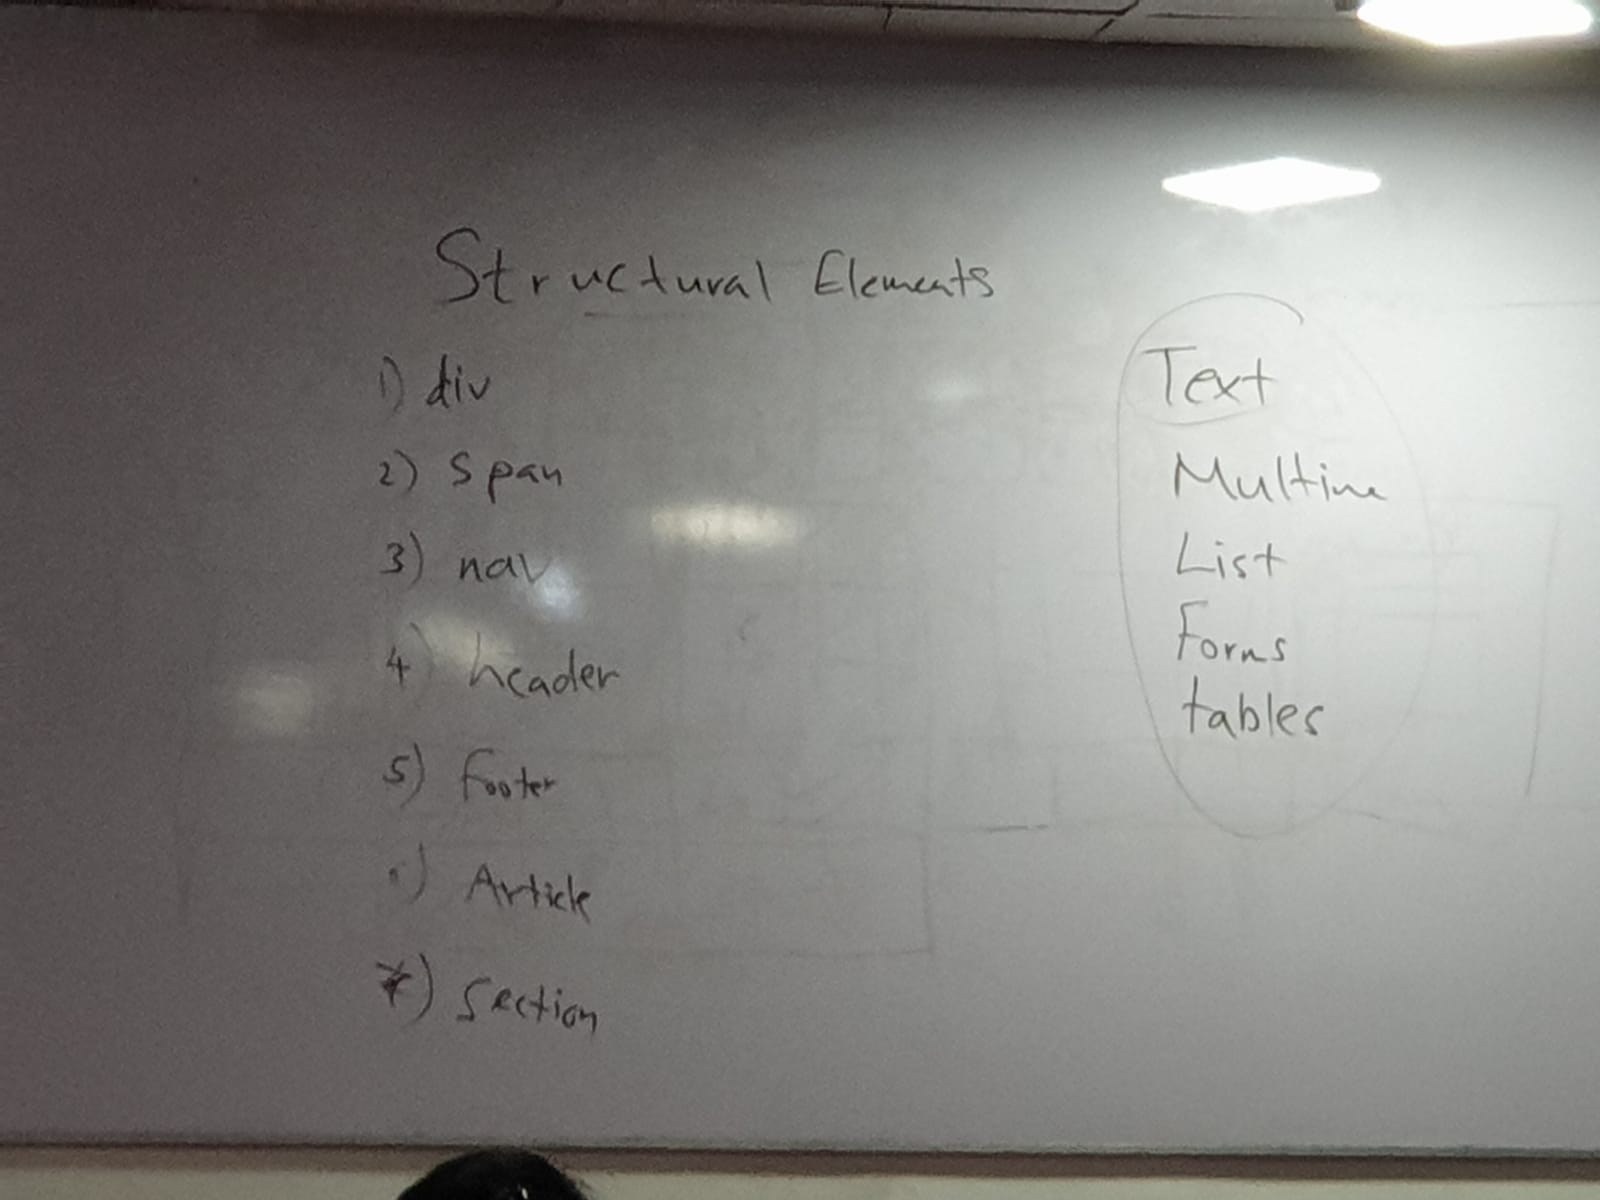 Structural Elements
1) div
2) span
3) nav
4) header
5) footer
) Article
7) section
Text
List
Forms
tables